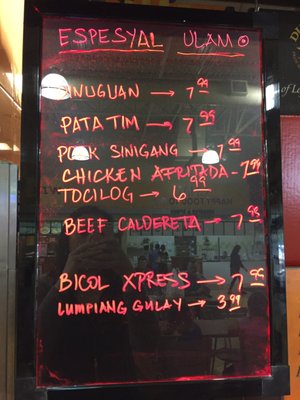 ESPESYAL ULAM
DINUGUAN → 7.99
PATA TIM → 7.99
PORK SINIGANG → 7.99
CHICKEN AFRITADA - 7.99
TOCILOG → 6.99
BEEF CALDERETA → 7.99
BICOL XPRESS → 7.99
LUMPIANG GULAY → 3.99